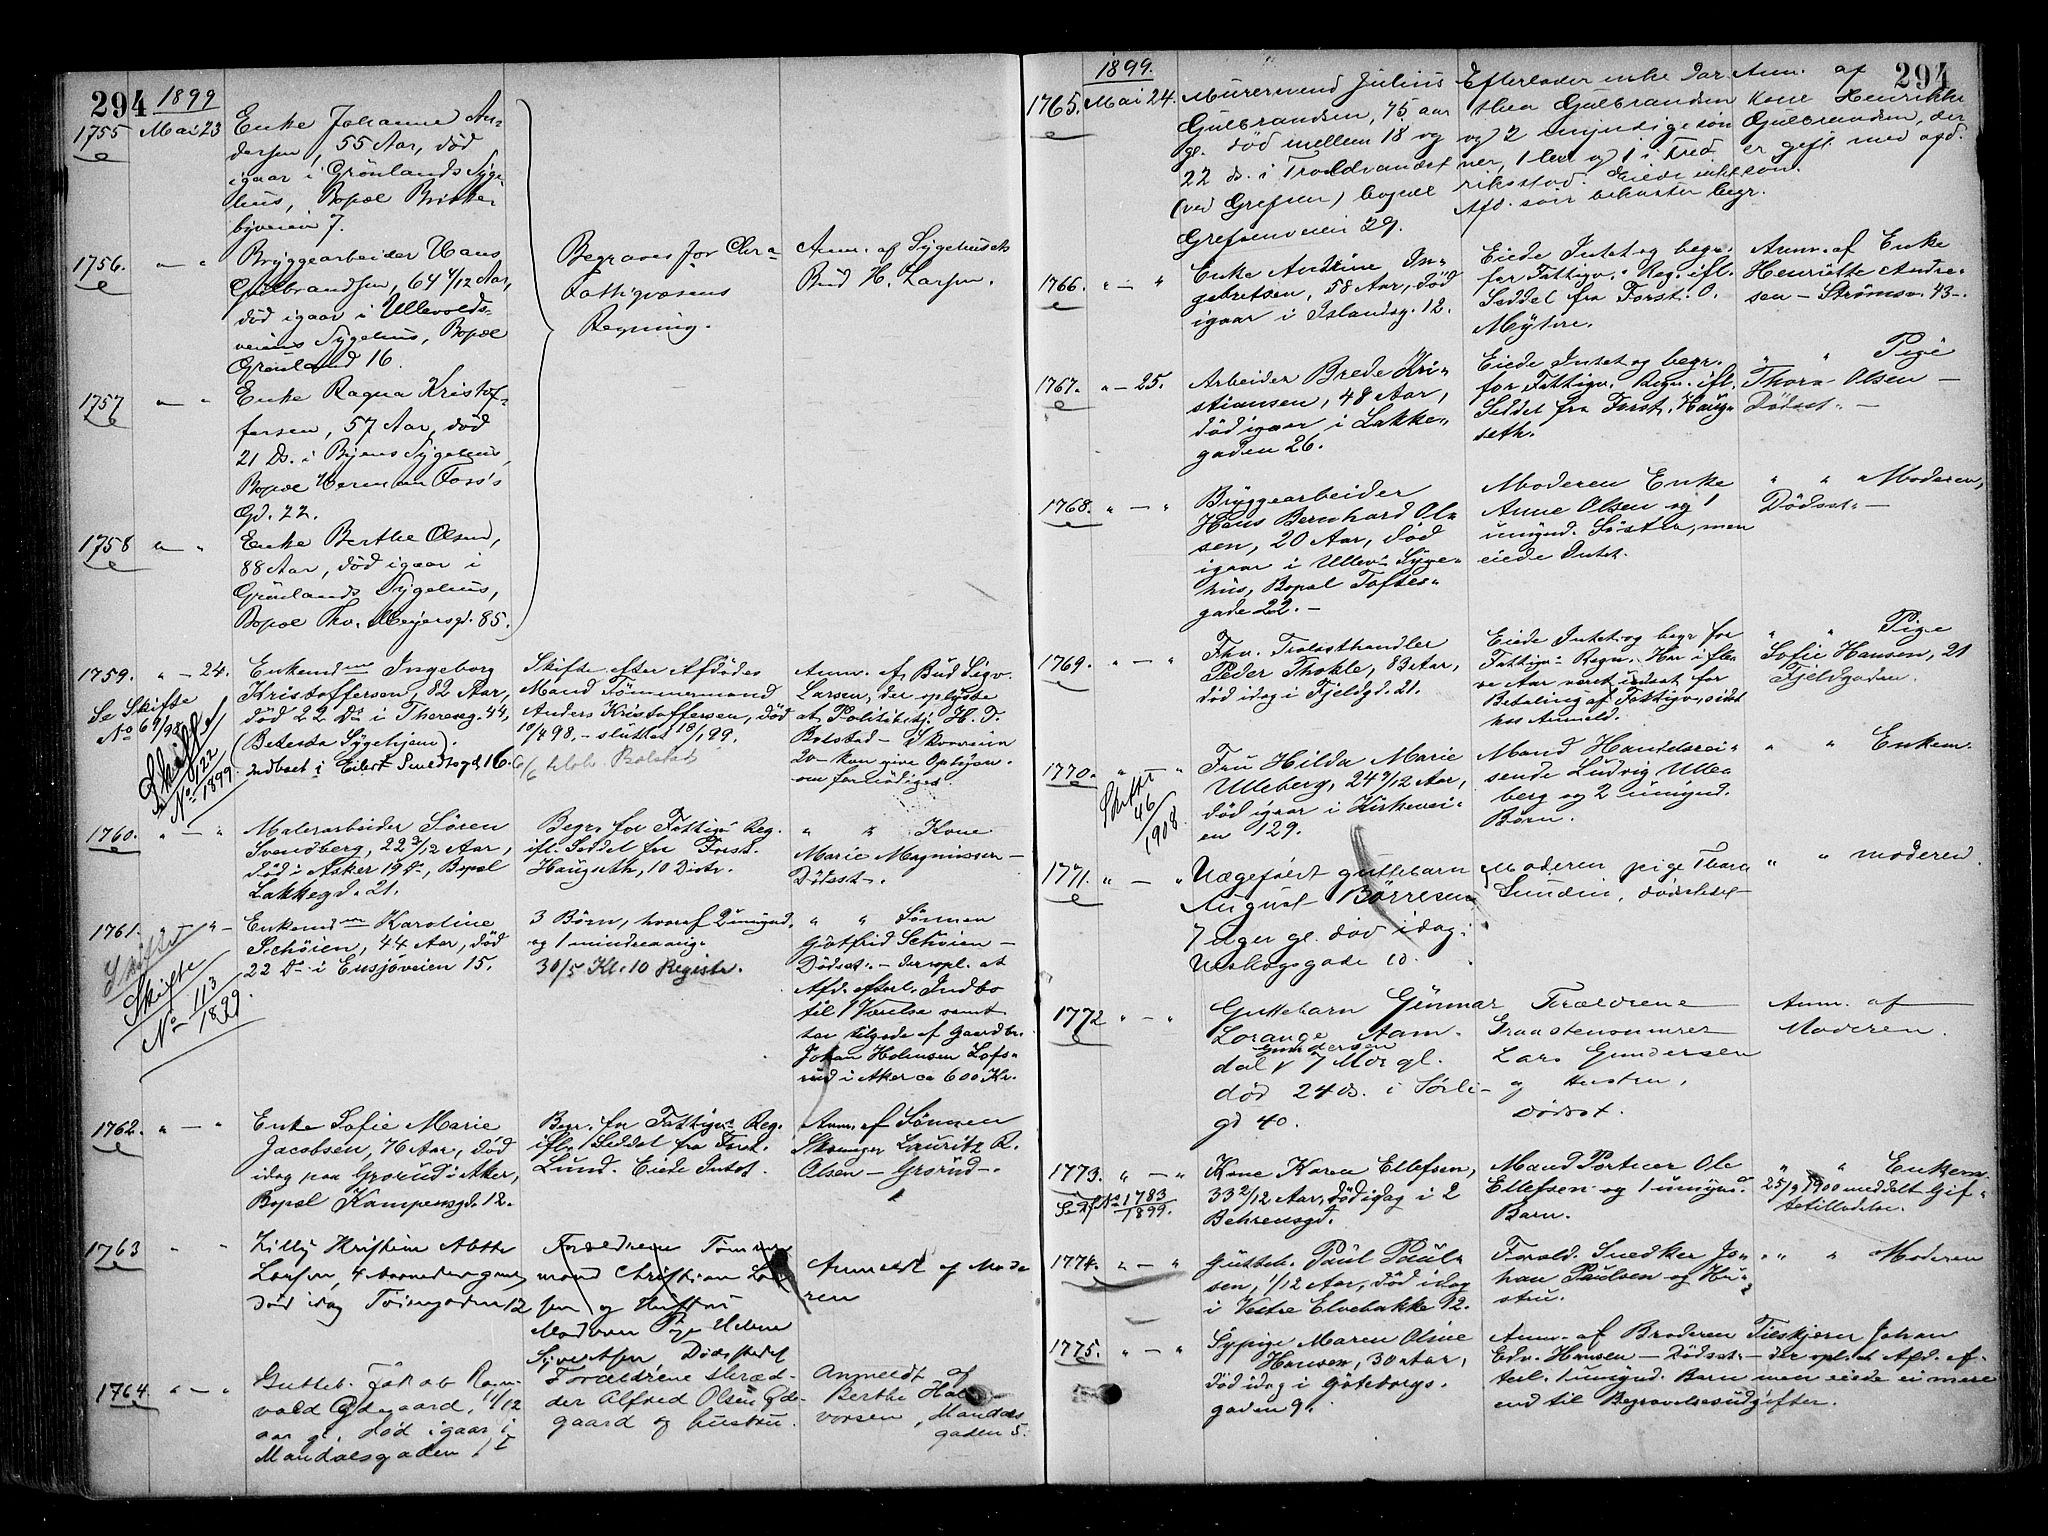 294 1899
1755 Mai 23 Enke Johanne An-
dersen, 55 Aar, død
igaar i Grönlands Syge-
hus, Bopæl
byveien 7.
1756. " — " Bryggearbeider Hans
Gulbrandsen, 64 4/12 Aar,
død igaar i Ullevolds-
veiens Sygehus, Bopæl
Grönland 16.
1757 " — " Enke Ragna Kristof-
fersen, 57 Aar, død
21 Ds. i Byens Sygehus,
Bopæl Herman Foss's
Gd. 22.
1758 " — " Enke Berthe Olsen,
88 Aar, død igaar i
Grönlands Sygehus,
Bopæl Thv. Meyersgd. 85.
Begraves for Chra
Fattigvæsens
Regning.
Anm. af Sygehusets
Bud H. Larsen.
1759. " — 24. Enkemd Ingeborg
Kristoffersen, 82 Aar,
død 22 Ds i Thereseg. 44,
(Betesda Sygehjem).
Indboet i Eilert Sundtsgd. 16
Se Skifte
No 69/98
Skifte
No 122
1899.
Skifte efter Afdødes
Mand Tömmermand
Anders Kristoffersen, død
10/4 98. – sluttet 18/1 99.
Bolstad
Anm. af Bud Sigv.
Larsen, der oplyste
at Politibetj. H. D.
Bolstad – Skovveien
20 – kan give Oplysn.
om fornödiges.
1760. " — " Malerarbeider Sören
Svendberg, 22 2/12 Aar,
død i Asker 19 Ds, Bopæl
Lakkegd. 21.
Begr. for Fattigv. Reg.
ifl. Seddel fra Forst.
Haugseth, 10 Distr.
" " Kone
Marie Magnussen –
Dödsst.
1761. " — Enkemd Karoline
Schöien, 44 Aar, død
22 Ds i Ensjöveien 15.
Skifte
Skifte
No 113
1899.
3 Börn, hvoraf 2 umynd.
og 1 mindreaarig.
30/5 Kl. 10 Registr.
" " Sönnen
Gotfrid Schöien –
Dödsst. – der opl. at
Afd. efterl. Indbo
til 1 Værelse samt
har tilgode af Gaardbr.
Johan Halvorsen Lofs-
rud i Aker ca 600 Kr.
1762. " — " Enke Sofie Marie
Jacobsen, 76 Aar, död
idag paa Grorud i Aker,
Bopæl Kampensgd. 12.
Begr. for Fattigv. Reg.
ifl. Seddel fra Forst.
Lund. Eiede Intet.
Anm. af Sönnen
Skomager Lauritz R.
Olsen – Grorud –.
1763 " " Lilly Kristine
Larsen, 4 maaneder gml,
död idag 12
Forældrene Tømmer
mand Christian Lar
sen og Hustru
Moderen Pige Helene
Dödsstedet
Anmeldt af Mode
ren
1764. " — " Gutteb. Jakob Ragn-
vald Ødegaard, 11/12
aar gl, død igaar i
Mandalsgaden 5
Forældrene skræd-
der Alfred Olsen Øde-
gaard og hustru.
Anmeldt af
Berthe Hal-
vorsen, Mandals
gaden 5.
294
1899.
1765. Mai 24. Murersvend Julius
Gulbrandsen, 75 aar
gl. död mellem 18 og
22 ds. i Troldvandet
(ved Grefsen) bopæl
Grefsenveien 29.
Efterlader enke Dor
thea Gulbrandsen
og 2 myndige søn
ner, 1 her og 1 i Fred.
riksstad. Eiede intet
Afd. søn bekoster begr.
Anm. af
kone Henrikke
Gulbrandsen, der
er gift med afd.
søn.
1766. " — " Enke Andrine In-
gebretsen, 58 Aar, död
igaar i Islandsg. 12.
Eiede Intet og begr.
for Fattigv. Reg. ifl.
Seddel fra Forst. O.
Myhre.
Anm. af Enke
Henriette Andre-
sen – Strömsv. 43 –.
1767. " — 25. Arbeider Brede Kri-
stiansen, 48 Aar,
död igaar i Lakke-
gaden 26.
Eiede Intet og begr.
for Fattigv. Regn. ifl.
Seddel fra Forst. Haug-
seth.
" " Pige
Thora Olsen –
Dödsst. –
1768. " — " Bryggearbeider
Hans Bernhard Ol-
sen, 20 Aar, död
igaar i Ullev. Syge-
hus, Bopæl Toftes-
gade 22. –
Moderen Enke
Anne Olsen og 1
umynd. Søster, men
eiede Intet.
" " Moderen,
Dödsst. –
1769. " — " Fhv. Trelasthandler
Peder Thokle, 83 Aar,
död idag i Fjeldgd. 21.
Eiede Intet og begr. for
Fattigv. Regn. Har i flere
Aar været indsat for
Betaling af Fattigv., sidst
hos Anmeld.
" " Pige
Sofie Hansen, 21
Fjeldgaden.
1770. " " Fru Hilda Marie
Ulleberg, 24 9/12 Aar,
död igaar i Kirkevei-
en 129.
Skifte
46
1908.
Mand Handelsrei-
sende Ludvig Ulle-
berg og 2 umynd.
Börn.
" " Enkem.
1771. " — " Uægtefødt guttebarn
August Börresen
7 uger gl. död idag i
Ueskogsgade 10.
Moderen pige Thora
Lundin, dödsstedet
" " moderen.
1772 " — " Guttebarn Gunnar
Lorange Aam-
dal Gundersen 7 Mdr gl.
död 24 ds. i Sørli-
gd 40.
Forældrene
Graastensmurer
Lars Gundersen
og Hustru,
Dödsst.
Anm. af
Moderen.
1773. " — " Kone Karen Ellefsen,
33 2/12 Aar, död idag i 2
Behrensgd.
Se No 1783
1899.
Mand Portner Ole
Ellefsen og 1 umynd.
Barn.
" " Enkem.
25/9 1900 meddelt Gif-
tetilladelse.
1774. " — " Gutteb. Paul Paul-
sen, 1/12 Aar, död idag
i Vestre Elvebakke 12.
Foræld. Snedker Jo-
han Paulsen og Hu-
stru.
" " Moderen
1775. " — " Sypige Maren Oline
Hansen, 30 Aar,
död idag i Göteborgs-
gaden 9.
Anm. af Broderen Tilskjærer Johan
Edv. Hansen – Dödsst. – der opl. at Afd. ef-
terl. 1 umynd. Barn men eiede ei mere
end til Begravelsesudgifter.